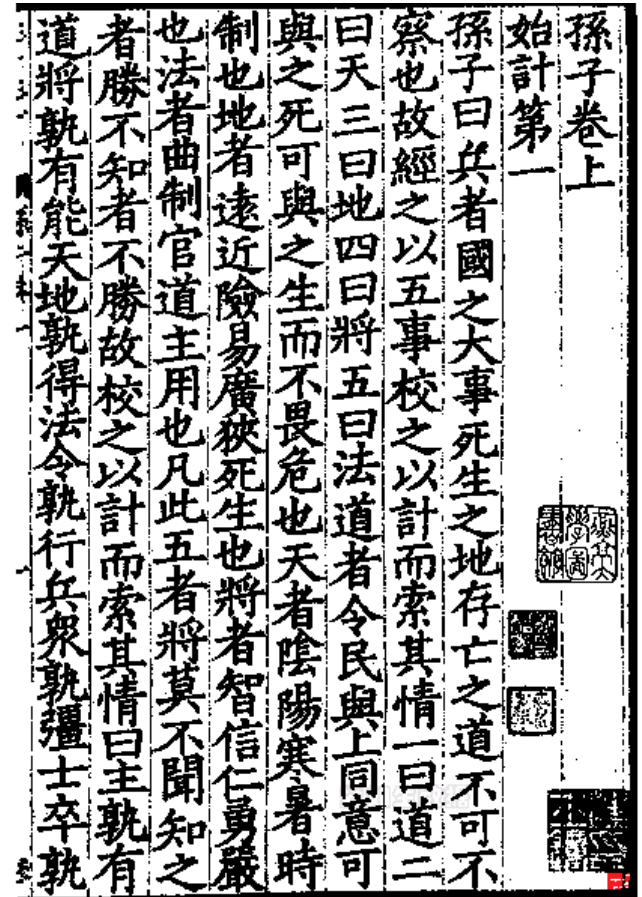 孫子卷上
始計第一
孫子曰兵者國之大事死生之地存亡之道不可不
察也故經之以五事校之以計而索其情一曰道二
曰天三曰地四曰將五曰法道者令民與上同意可
與之死可與之生而不畏危也天者陰陽寒暑時
制也地者遠近險易廣狹死生也將者智信仁勇嚴
也法者曲制官道主用也凡此五者將莫不聞知之
者勝不知者不勝故校之以計而索其情曰主孰有
道將孰有能天地孰得法令孰行兵衆孰彊士卒孰